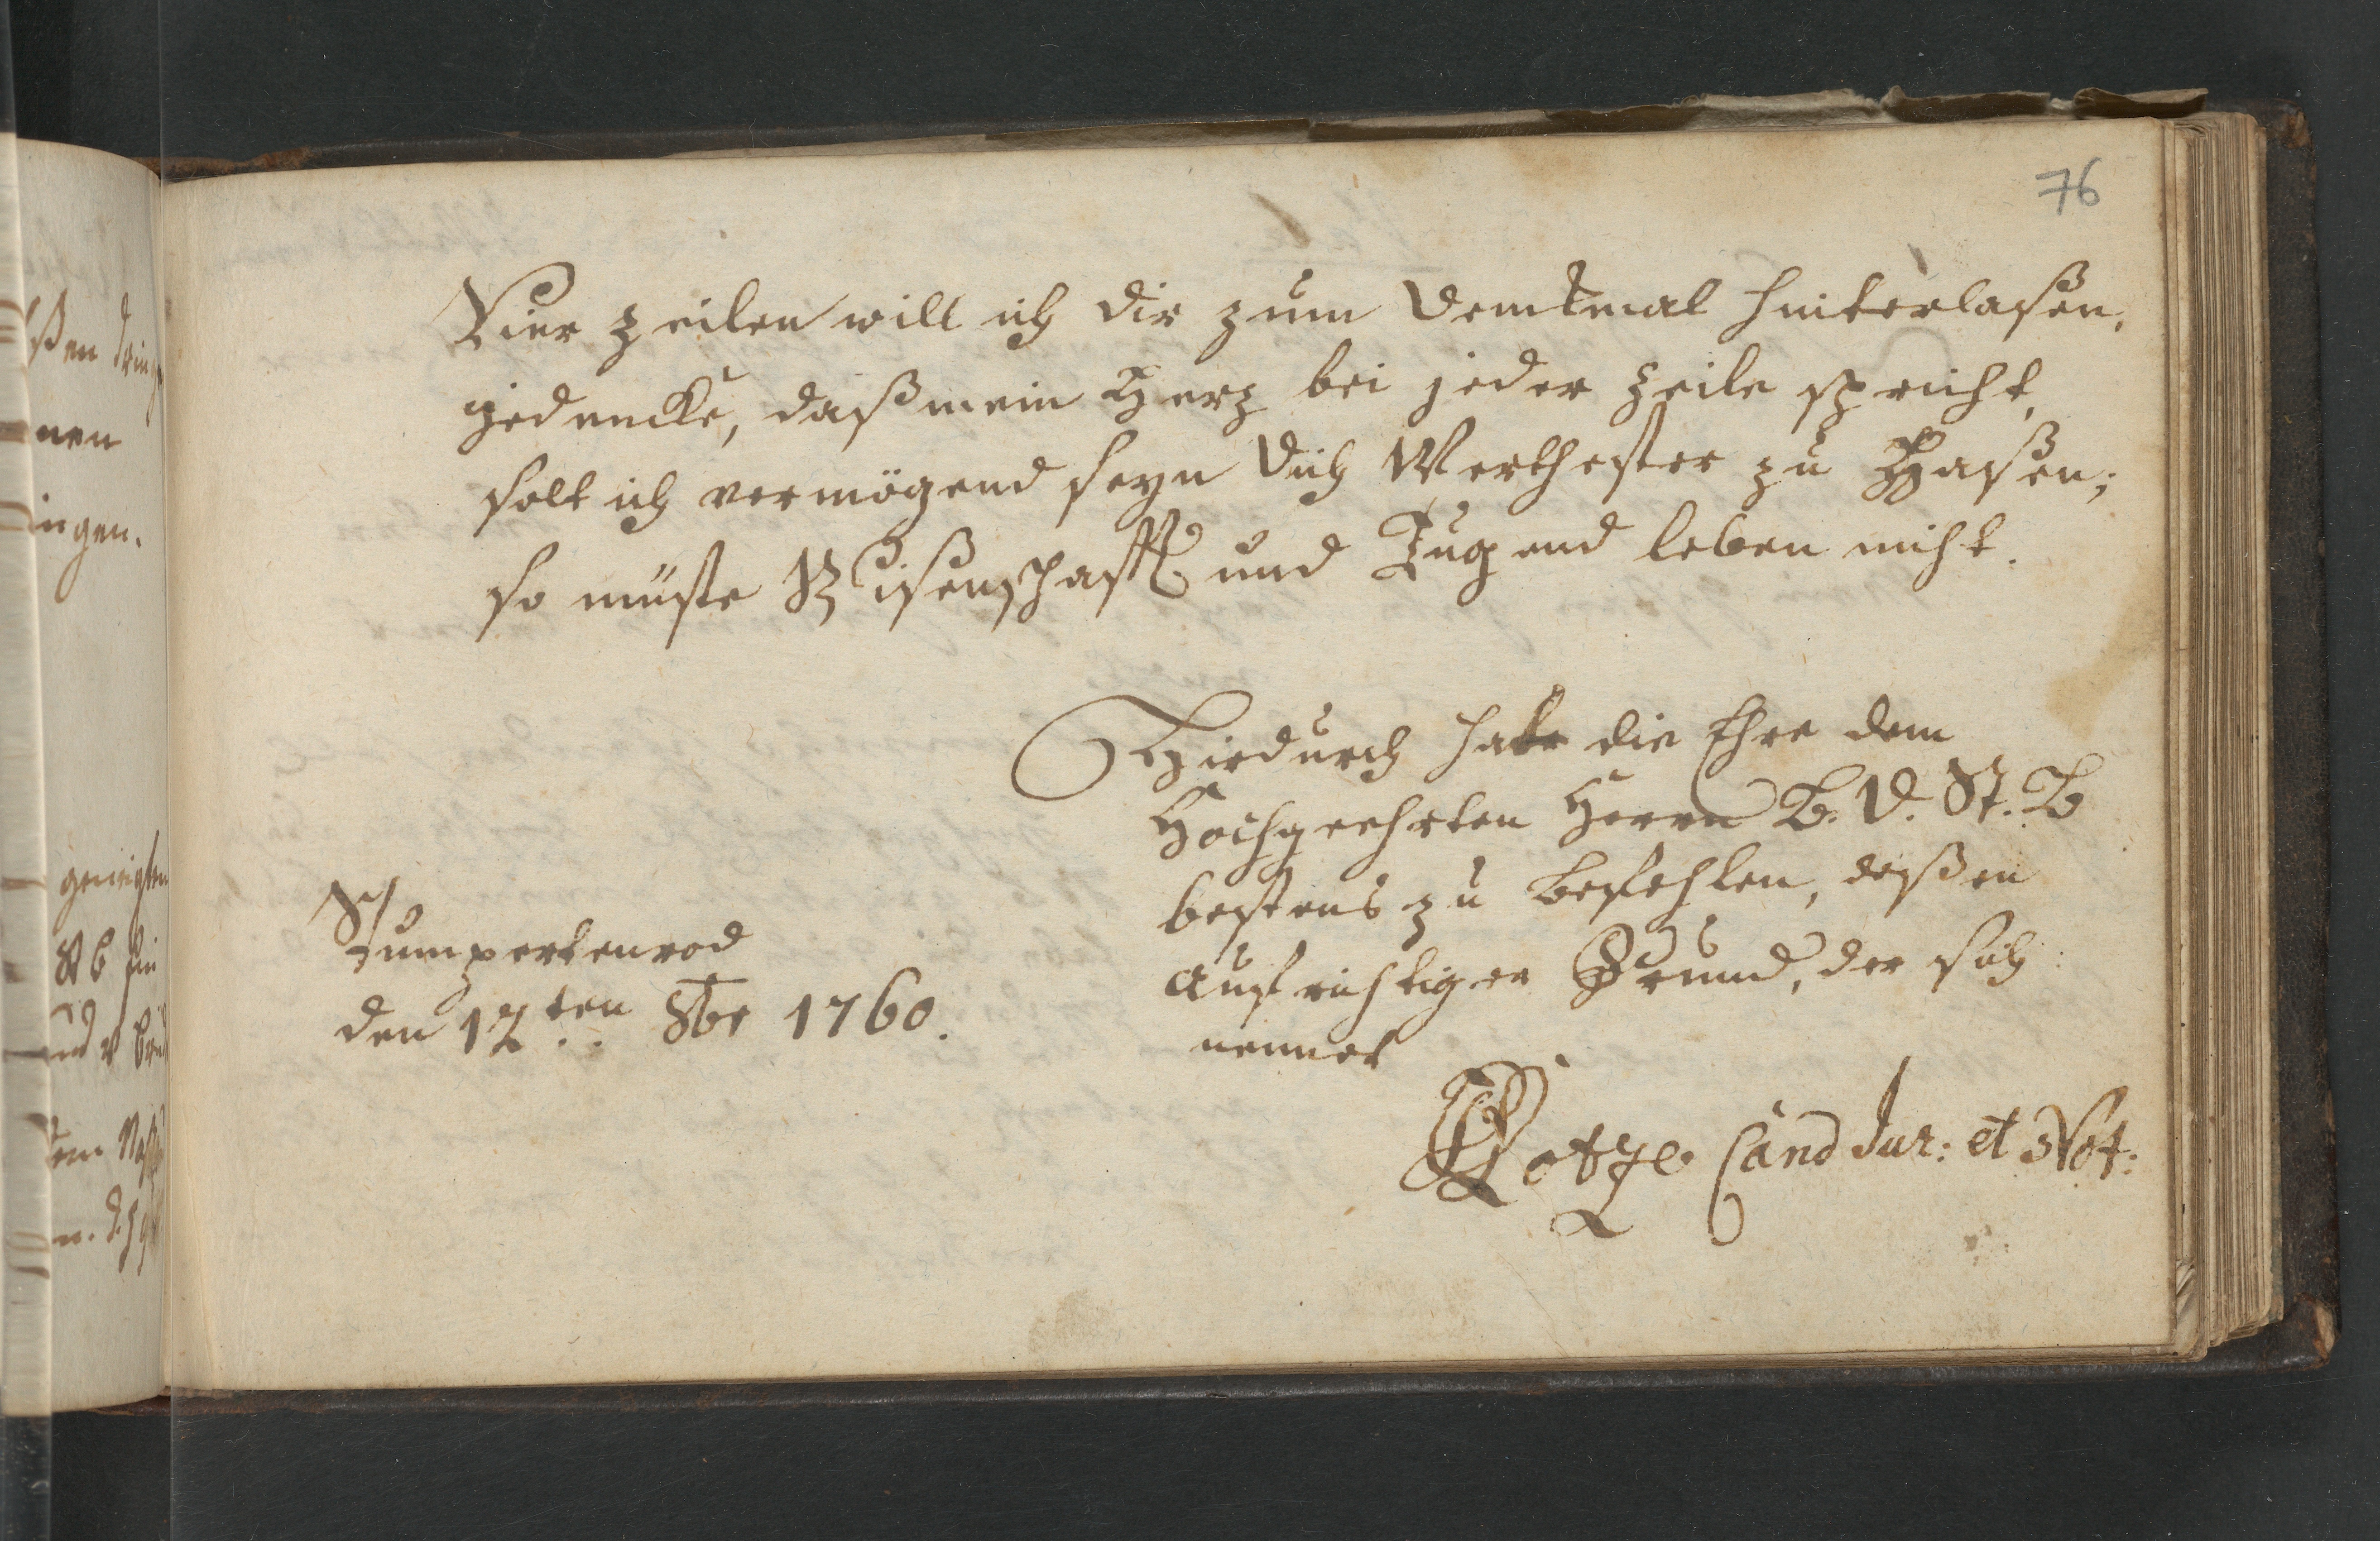 76
Vier Zeilen will ich dir zum Denkmal hinterlaßen,
gedencke, daß mein Herz bei jeder Zeile spricht,
solt ich vermögend seyn dich Werthester zu Haßen;
so müste Wißenschafft und Tugend leben nicht.
Hiedurch habe die Ehre dem
Hochgeehrten Herrn B. V. St. B
bestens zu befehlen, deßen
aufrichtiger Freund, der sich
nennet
Stumpertenrod
den 12ten 8br 1760.
Cand Jur: et Not:
ßen
nen
ingen.